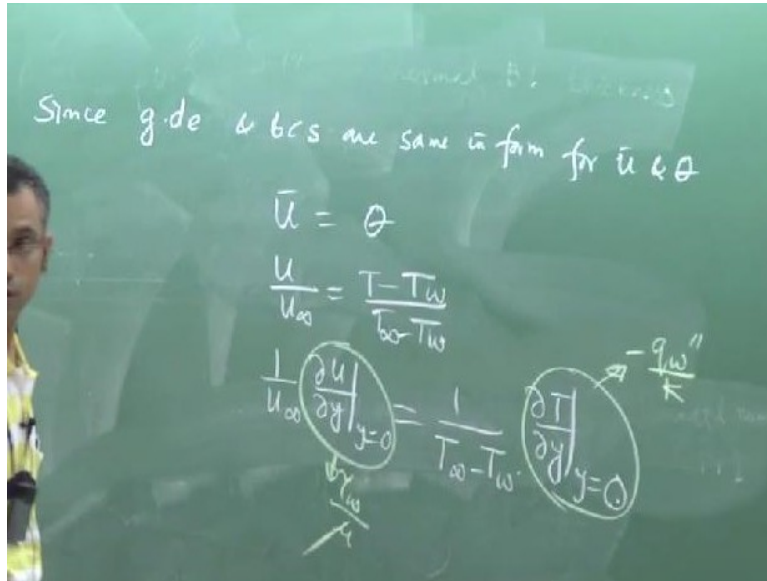 Since g.de & bcs are same in form for ū & θ
ū = θ
u/u∞ = T-Tw/T∞-Tw
1/u∞ ∂u/∂y|y=0 = 1/T∞-Tw ∂T/∂y|y=0 → -qw''/k
τw/μ